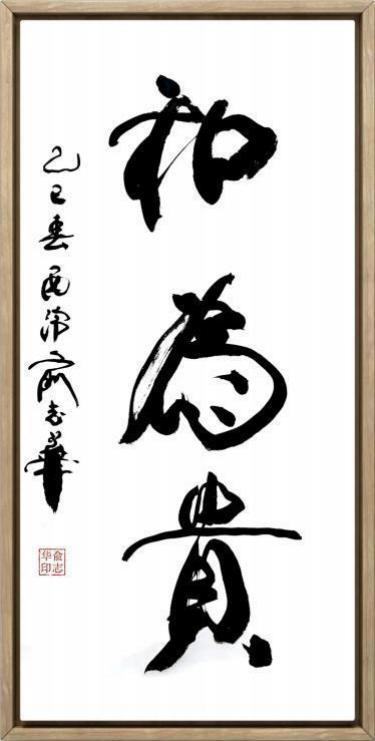 和為貴
乙巳春西俞志華
俞志
华印